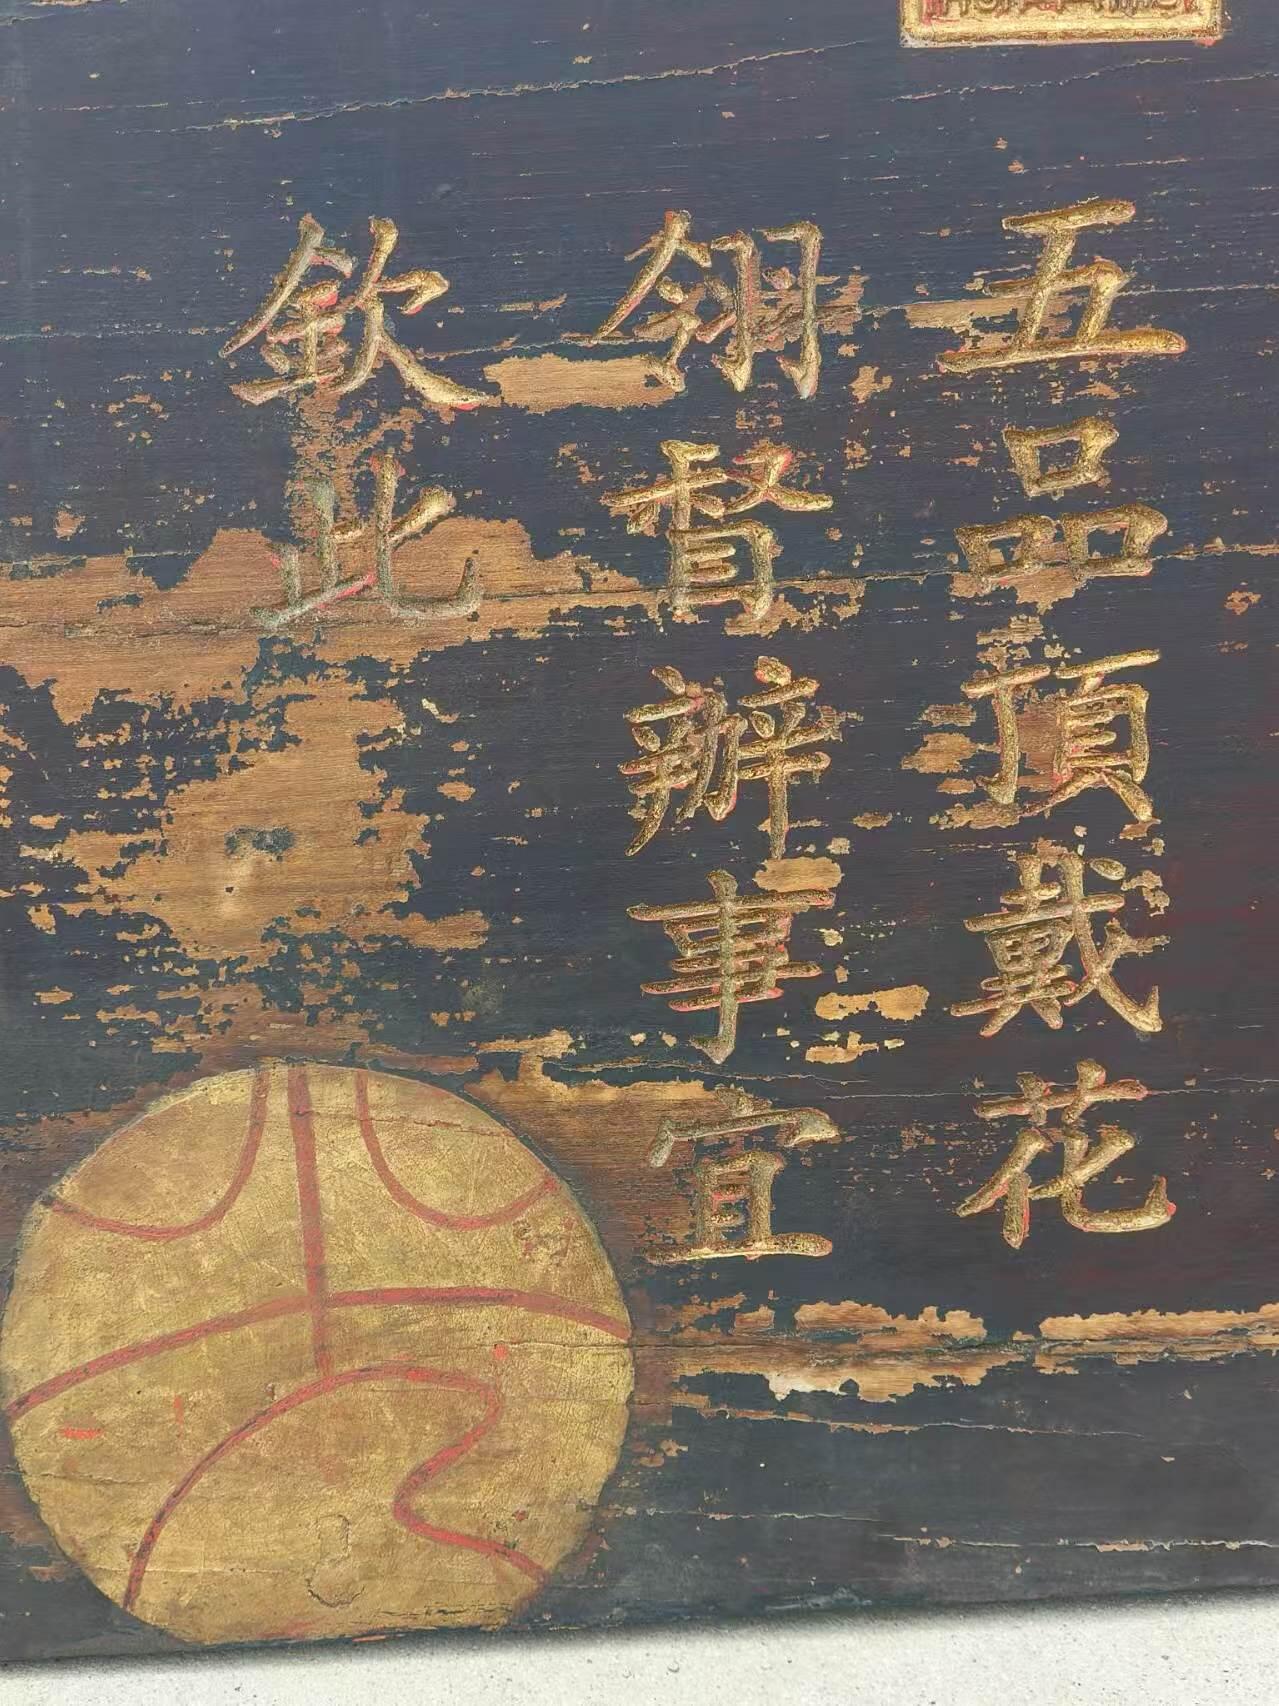 五品頂戴花
翎督辦事宜
欽此